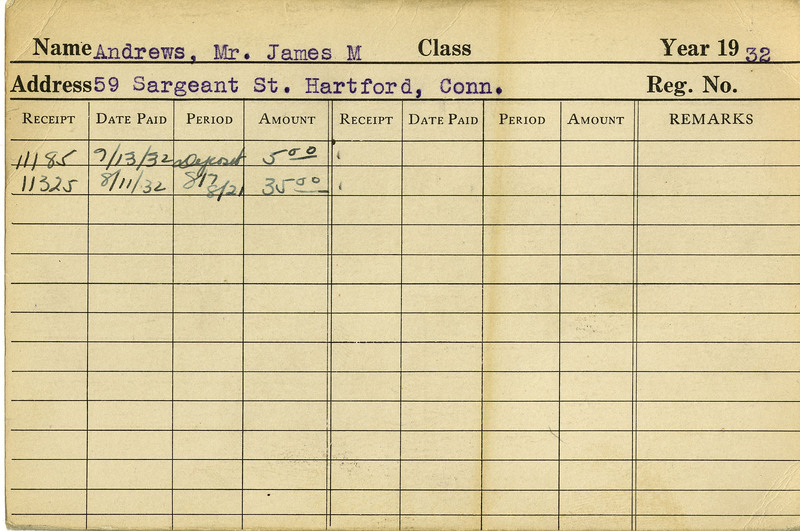 Name Andrews, Mr. James M Class Year 19 32
Address 59 Sargeant St. Hartford, Conn. Reg. No.
RECEIPT DATE PAID PERIOD AMOUNT RECEIPT DATE PAID PERIOD AMOUNT REMARKS
11185 7/13/32 Deposit 5 00
11325 8/11/32 8/7 8/21 35 00